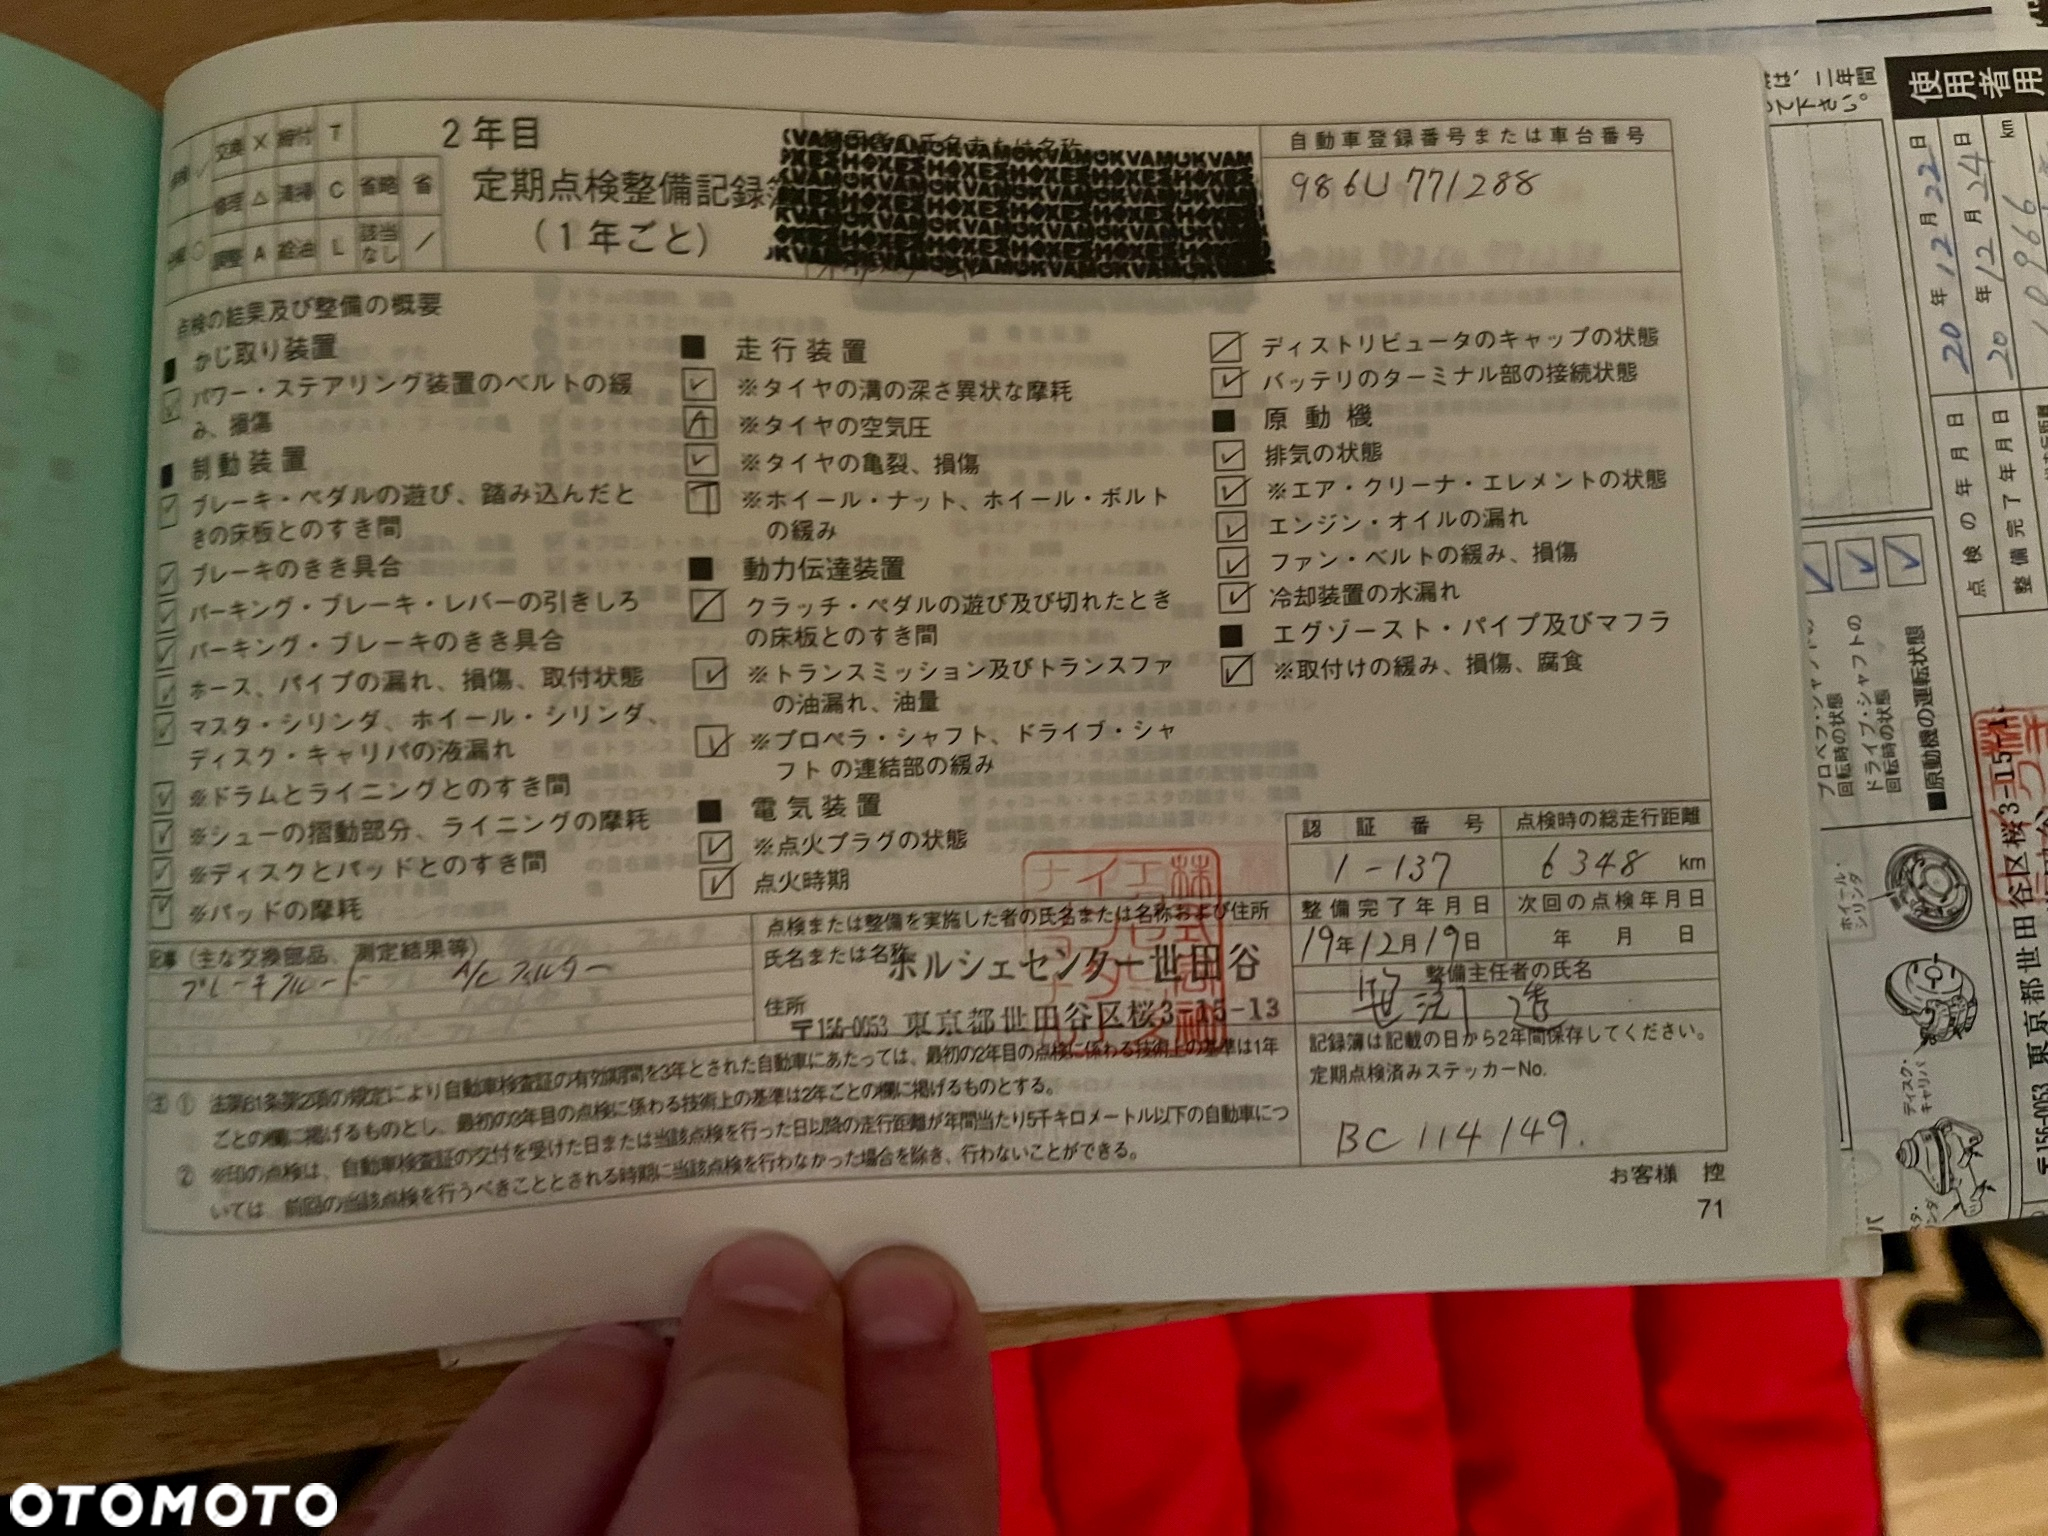 交換 × 締付 T
修理 △ 清掃 C 省略 省
調整 A 給油 L 該当なし ／
2年目
定期点検整備記録
（1年ごと）
自動車登録番号または車台番号
986U771288
点検の結果及び整備の概要
■ かじ取り装置
パワー・ステアリング装置のベルトの緩
み、損傷
■ 制動装置
ブレーキ・ペダルの遊び、踏み込んだと
きの床板とのすき間
ブレーキのきき具合
パーキング・ブレーキ・レバーの引きしろ
パーキング・ブレーキのきき具合
ホース、パイプの漏れ、損傷、取付状態
マスタ・シリンダ、ホイール・シリンダ、
ディスク・キャリパの液漏れ
※ドラムとライニングとのすき間
※シューの摺動部分、ライニングの摩耗
※ディスクとパッドとのすき間
※パッドの摩耗
■ 走行装置
※タイヤの溝の深さ異状な摩耗
※タイヤの空気圧
※タイヤの亀裂、損傷
※ホイール・ナット、ホイール・ボルト
の緩み
■ 動力伝達装置
クラッチ・ペダルの遊び及び切れたとき
の床板とのすき間
※トランスミッション及びトランスファ
の油漏れ、油量
※プロペラ・シャフト、ドライブ・シャ
フトの連結部の緩み
■ 電気装置
※点火プラグの状態
点火時期
ディストリビュータのキャップの状態
バッテリのターミナル部の接続状態
■ 原動機
排気の状態
※エア・クリーナ・エレメントの状態
エンジン・オイルの漏れ
ファン・ベルトの緩み、損傷
冷却装置の水漏れ
■ エグゾースト・パイプ及びマフラ
※取付けの緩み、損傷、腐食
認証番号 点検時の総走行距離
1-137 6348 km
整備完了年月日 次回の点検年月日
19年12月19日 年 月 日
整備主任者の氏名
記事（主な交換部品、測定結果等）
ブレーキフルード A/Cフィルター
点検または整備を実施した者の氏名または名称および住所
氏名または名称 ポルシェセンター世田谷
住所
〒156-0053 東京都世田谷区桜3-15-13
記録簿は記載の日から2年間保存してください。
定期点検済みステッカーNo.
BC114149.
注 ① 法第61条第2項の規定により自動車検査証の有効期間を3年とされた自動車にあたっては、最初の2年目の点検に係わる技術上の基準は1年
ごとの欄に掲げるものとし、最初の3年目の点検に係わる技術上の基準は2年ごとの欄に掲げるものとする。
② ※印の点検は、自動車検査証の交付を受けた日または当該点検を行った日以降の走行距離が年間当たり5千キロメートル以下の自動車につ
いては、前回の当該点検を行うべきこととされる時期に当該点検を行わなかった場合を除き、行わないことができる。
お客様 控
71
使用者用
二年間
20年12月22日
20年12月24日
km
10966
点検の年月日
整備完了年月日
回転時の状態
ドライブ・シャフトの
回転時の状態
■原動機の運転状態
ホイール・
シリンダ
ディスク・
キャリパ
〒156-0053 東京都世田谷区桜3-15-1
OTOMOTO